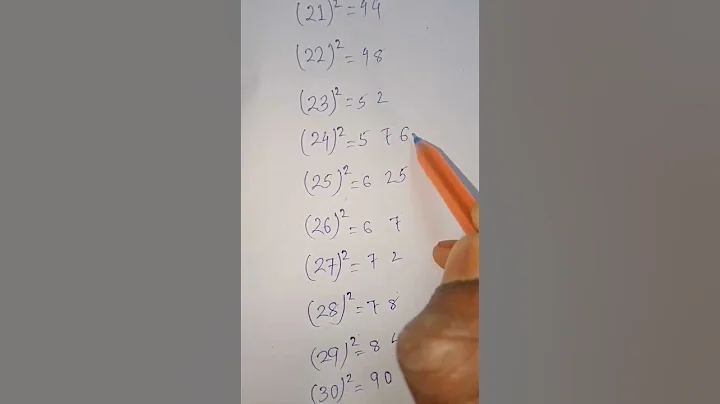 (21)² = 44
(22)² = 48
(23)² = 5 2
(24)² = 5 7 6
(25)² = 6 25
(26)² = 6 7
(27)² = 7 2
(28)² = 7 8
(29)² = 8 4
(30)² = 90